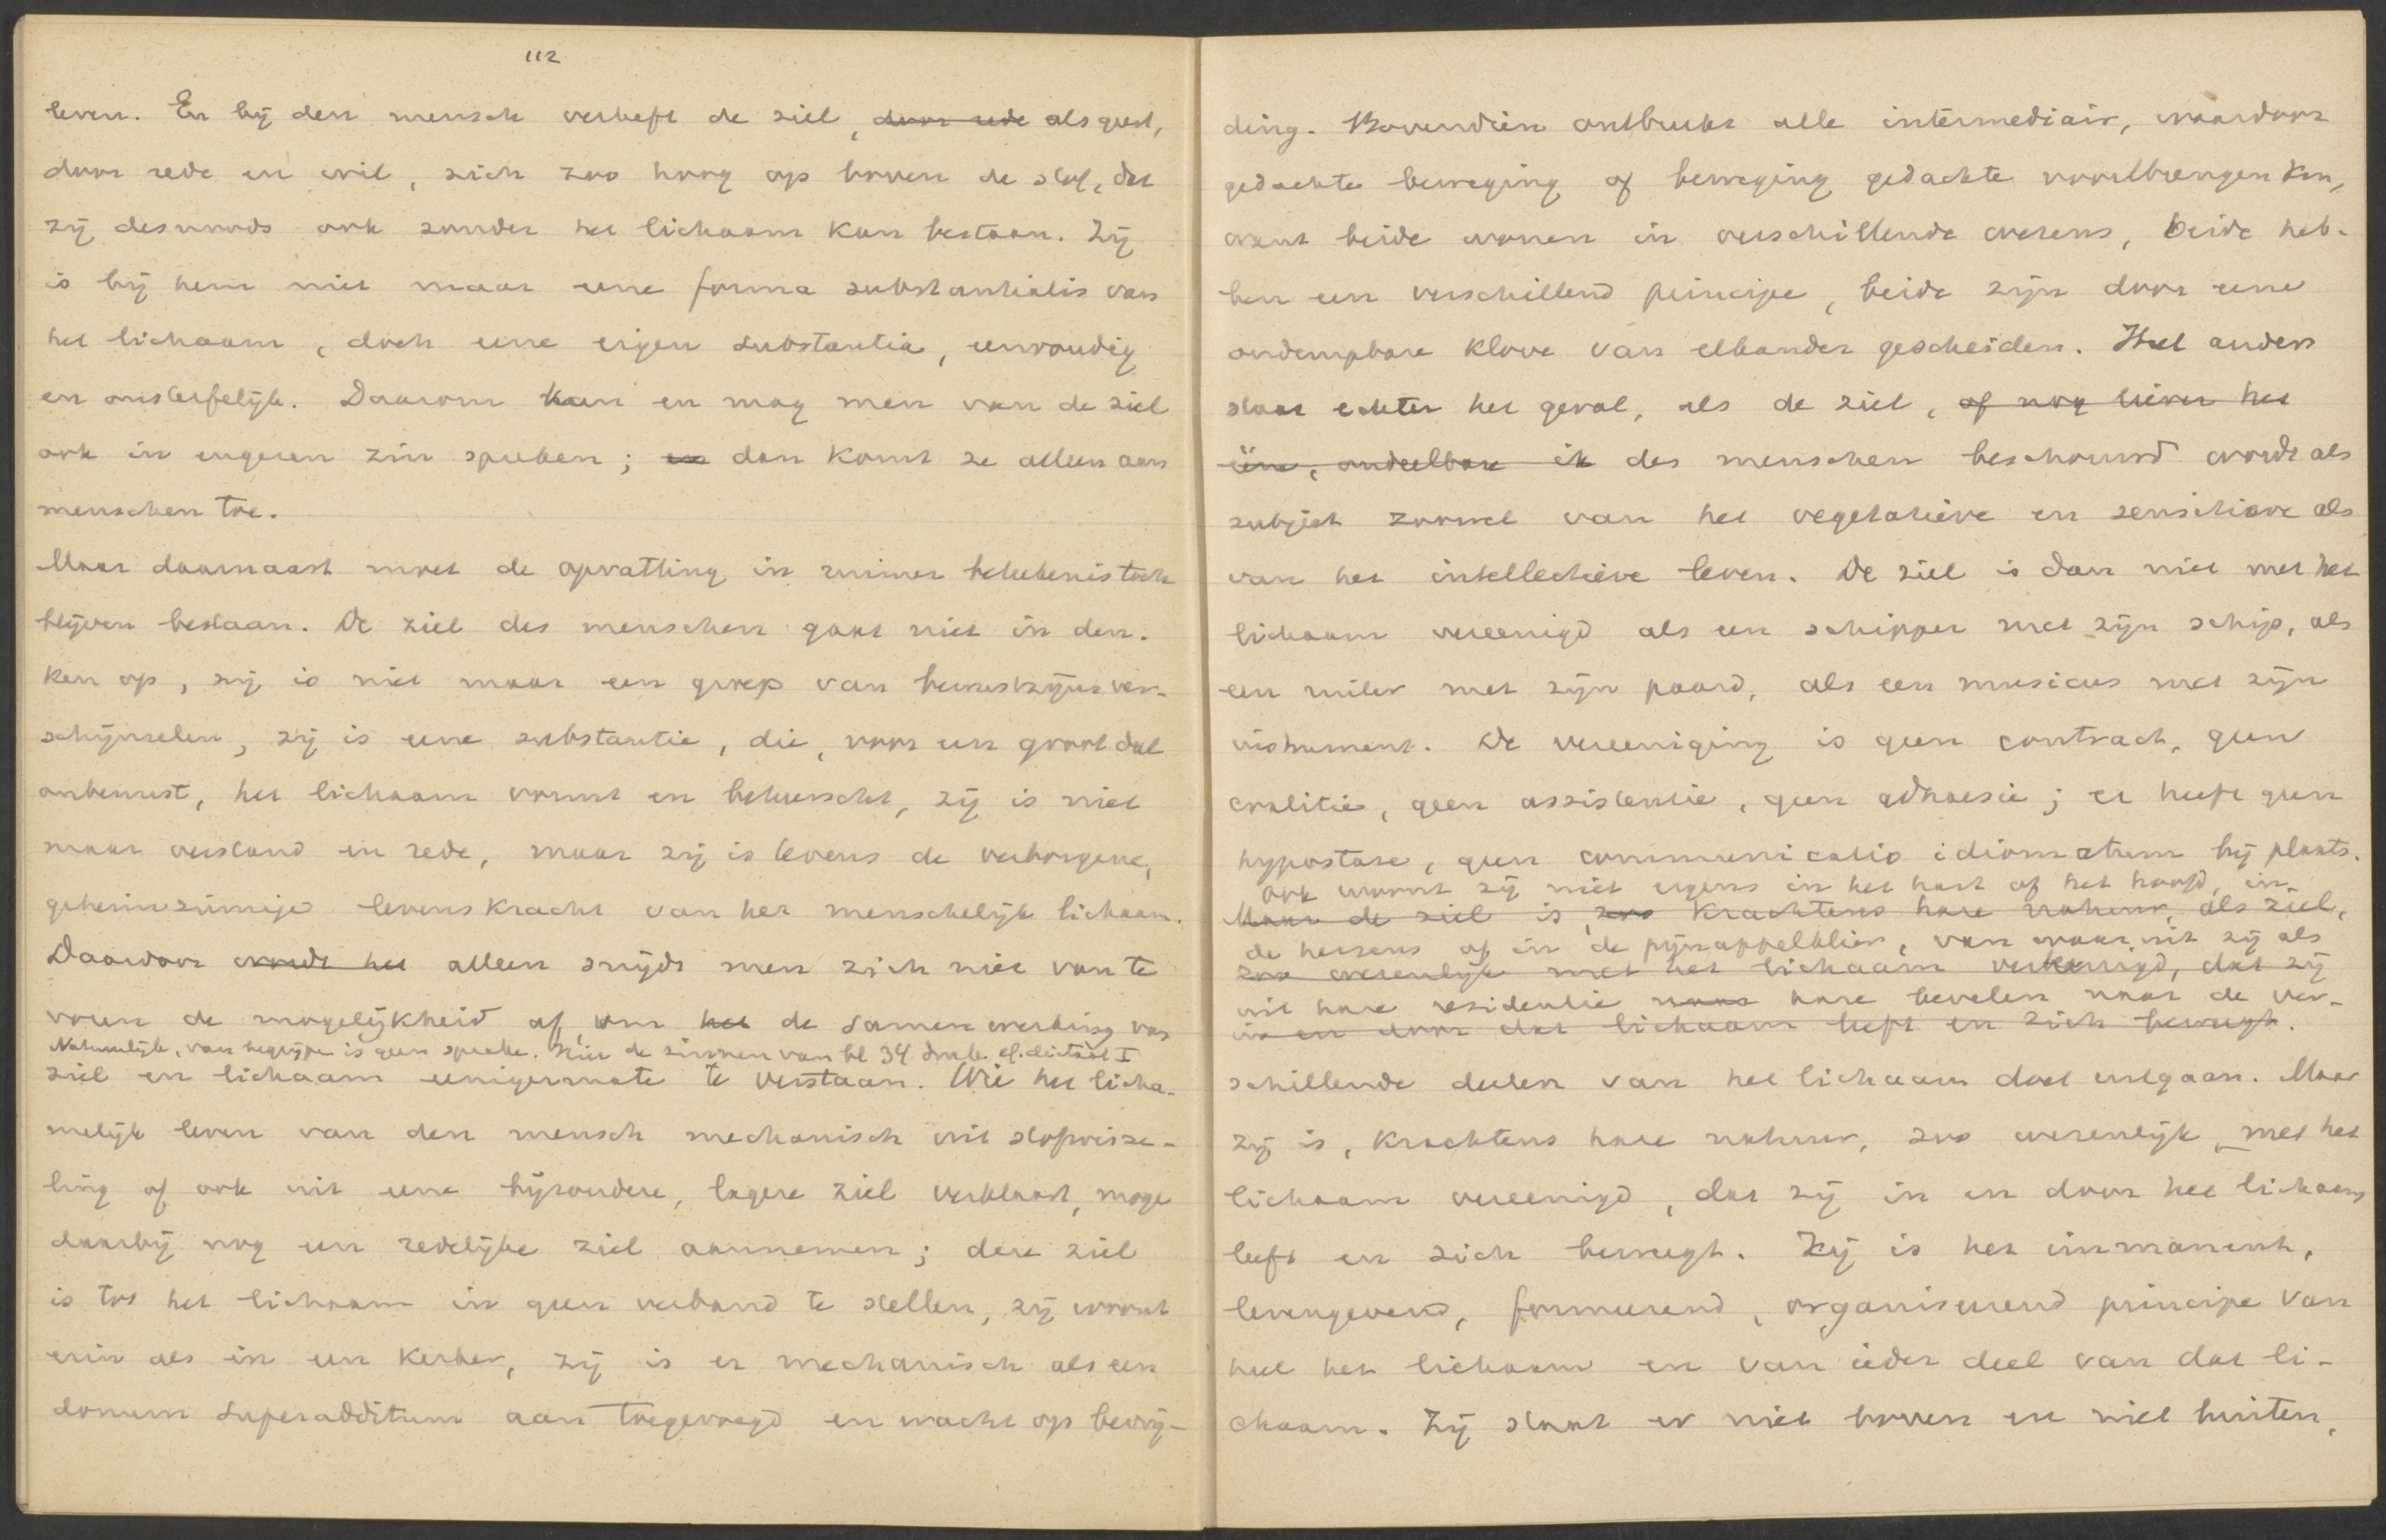 112
leven. En bij den mensch verheft de ziel, door rede als geest,
door rede en wil, zich zoo hoog op boven de stof, dat
zij desnoods ook zonder het lichaam kan bestaan. Zij
is bij hem niet maar eene forma substantialis van
het lichaam, doch eene eigen substantia, eenvoudig
en onsterfelijk. Daarom kan en mag men van de ziel
ook in engeren zin spreken; en dan komt ze alleen aan
menschen toe.
Maar daarnaast moet de opvatting in ruimer beteekenis toch
blijven bestaan. De ziel des menschen gaat niet in den-
ken op, zij is niet maar een groep van bewustzijnsver-
schijnselen, zij is eene substantie, die, voor een groot deel
onbewust, het lichaam vormt en beheerscht, zij is niet
maar verstand en rede, maar zij is tevens de verborgene,
geheimzinnige levenskracht van het menschelijk lichaam.
Daardoor wordt het alleen snijdt men zich niet van te
voren de mogelijkheid af, om het de samenwerking van
Natuurlijk, van begrijpen is geen sprake. Hier de zinnen van bl 34 druk. cf. dictaat I
ziel en lichaam eenigermate te verstaan. Wie het licha-
melijk leven van den mensch mechanisch uit stofwisse-
ling of ook uit eene bijzondere, lagere ziel verklaart, moge
daarbij nog een redelijke ziel aannemen; deze ziel
is tot het lichaam in geen verband te stellen, zij woont
erin als in een kerker, zij is er mechanisch als een
donum superadditum aan toegevoegd en wacht op bevrij-
ding. Bovendien ontbreekt alle intermediair, waardoor
gedachte beweging of beweging gedachte voortbrengen kan,
want beide wonen in verschillende wezens, beide heb-
ben een verschillend principe, beide zijn door eene
ondempbare klove van elkander gescheiden. Heel anders
staat echter het geval, als de ziel, of nog liever het
ééne, ondeelbare ik des menschen beschouwd wordt als
subject zoowel van het vegetatieve en sensitieve als
van het intellectieve leven. De ziel is dan niet met het
lichaam vereenigd als een schipper met zijn schip, als
een ruiter met zijn paard, als een musicus met zijn
instrument. De vereeniging is geen contract, geen
coalitie, geen assistentie, geen adhaesie; er heeft geen
hypostase, geen communicatio idiomatum bij plaats.
Ook woont zij niet ergens in het hart of het hoofd, in
Maar de ziel is, zoo krachtens hare natuur, als ziel,
de hersens of in de pijnappelklier, van waaruit zij als
zoo wezenlijk met het lichaam vereenigd, dat zij
uit hare residentie naar hare bevelen naar de ver-
in en door dat lichaam leeft en zich beweegt.
schillende deelen van het lichaam doet uitgaan. Maar
zij is, krachtens hare natuur, zoo wezenlijk met het
lichaam vereenigd, dat zij in en door het lichaam
leeft en zich beweegt. Zij is het immanent,
levengevend, formeerend, organiseerend principe van
heel het lichaam en van ieder deel van dat li-
chaam. Zij staat er niet boven en niet buiten,